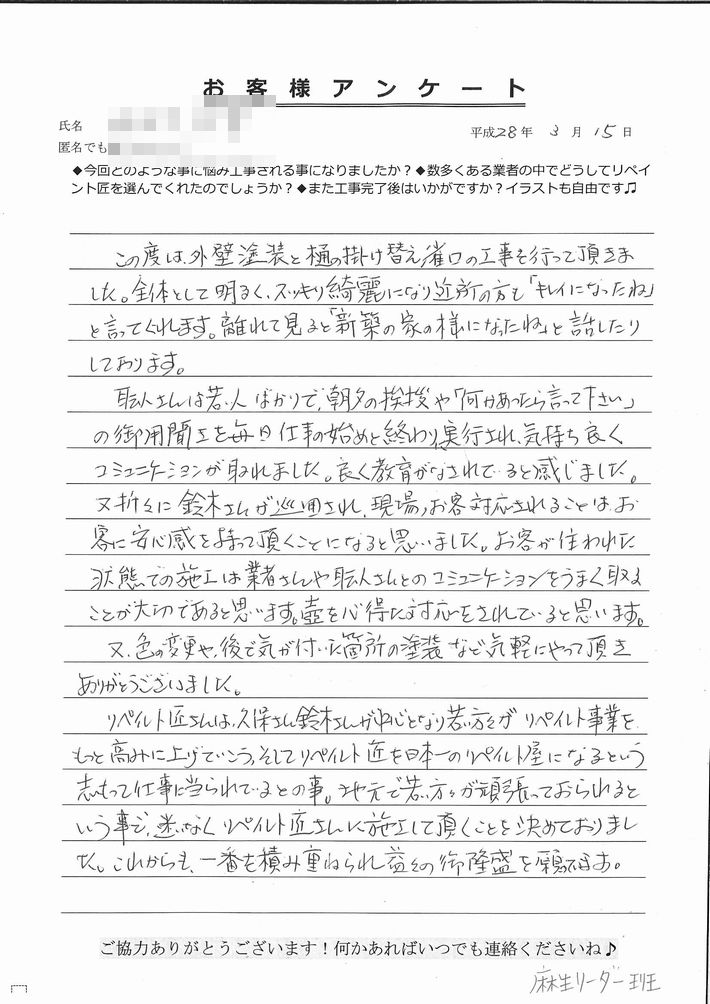 お客様アンケート
氏名
平成28年 3月 15日
匿名でも
◆今回どのような事に悩み工事される事になりましたか？◆数多くある業者の中でどうしてリペイ
ント匠を選んでくれたのでしょうか？◆また工事完了後はいかがですか？イラストも自由です♫
この度は、外壁塗装と樋の掛け替え、雀口の工事を行って頂きま
した。全体として明るく、スッキリ綺麗になり近所の方も「キレイになったね」
と言ってくれます。離れて見ると「新築の家の様になったね」と話したり
しております。
職人さんは若い人ばかりで、朝夕の挨拶や「何かあったら言って下さい」
の御用聞きを毎日仕事の始めと終わり、実行され、気持ち良く
コミュニケーションが取れました。良く教育がなされていると感じました。
又折々に鈴木さんが巡回され、現場、お客対応されることは、お
客に安心感を持って頂くことになると思いました。お客が住われた
状態での施工は業者さんや職人さんとのコミュニケーションをうまく取る
ことが大切であると思います。壺を心得た対応をされていると思います。
又、色の変更や、後で気が付いた箇所の塗装など気軽にやって頂き
ありがとうございました。
リペイント匠さんは、久保さん鈴木さんが中心となり若い方々がリペイント事業を
もっと高みに上げていこう、そしてリペイント匠を日本一のリペイント屋になるという
志もって仕事に当られているとの事。地元で若い方々が頑張っておられると
いう事で、迷いなくリペイント匠さんに施工して頂くことを決めておりまし
た。これからも、一番を積み重ねられ益々の御隆盛を願います。
ご協力ありがとうございます！何かあればいつでも連絡くださいね♪
麻生リーダー班